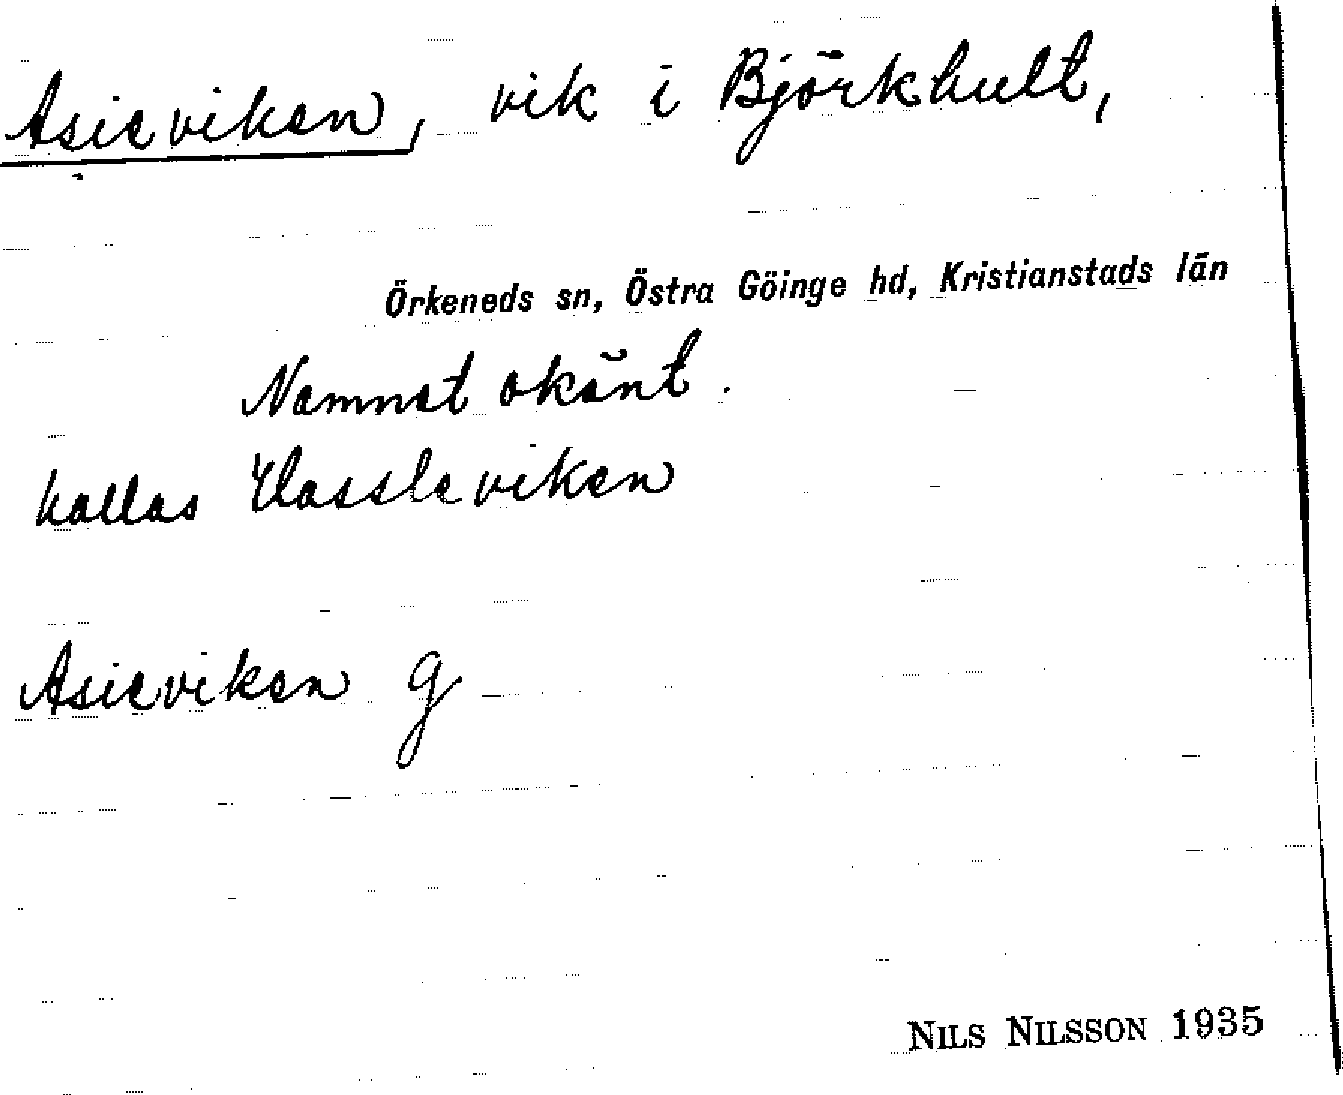 Asieviken, vik i Björkhult,
Örkeneds sn, Östra Göinge hd, Kristianstads län
Namnet okänt.
kallas Hassleviken
Asieviken g
NILS NILSSON 1935